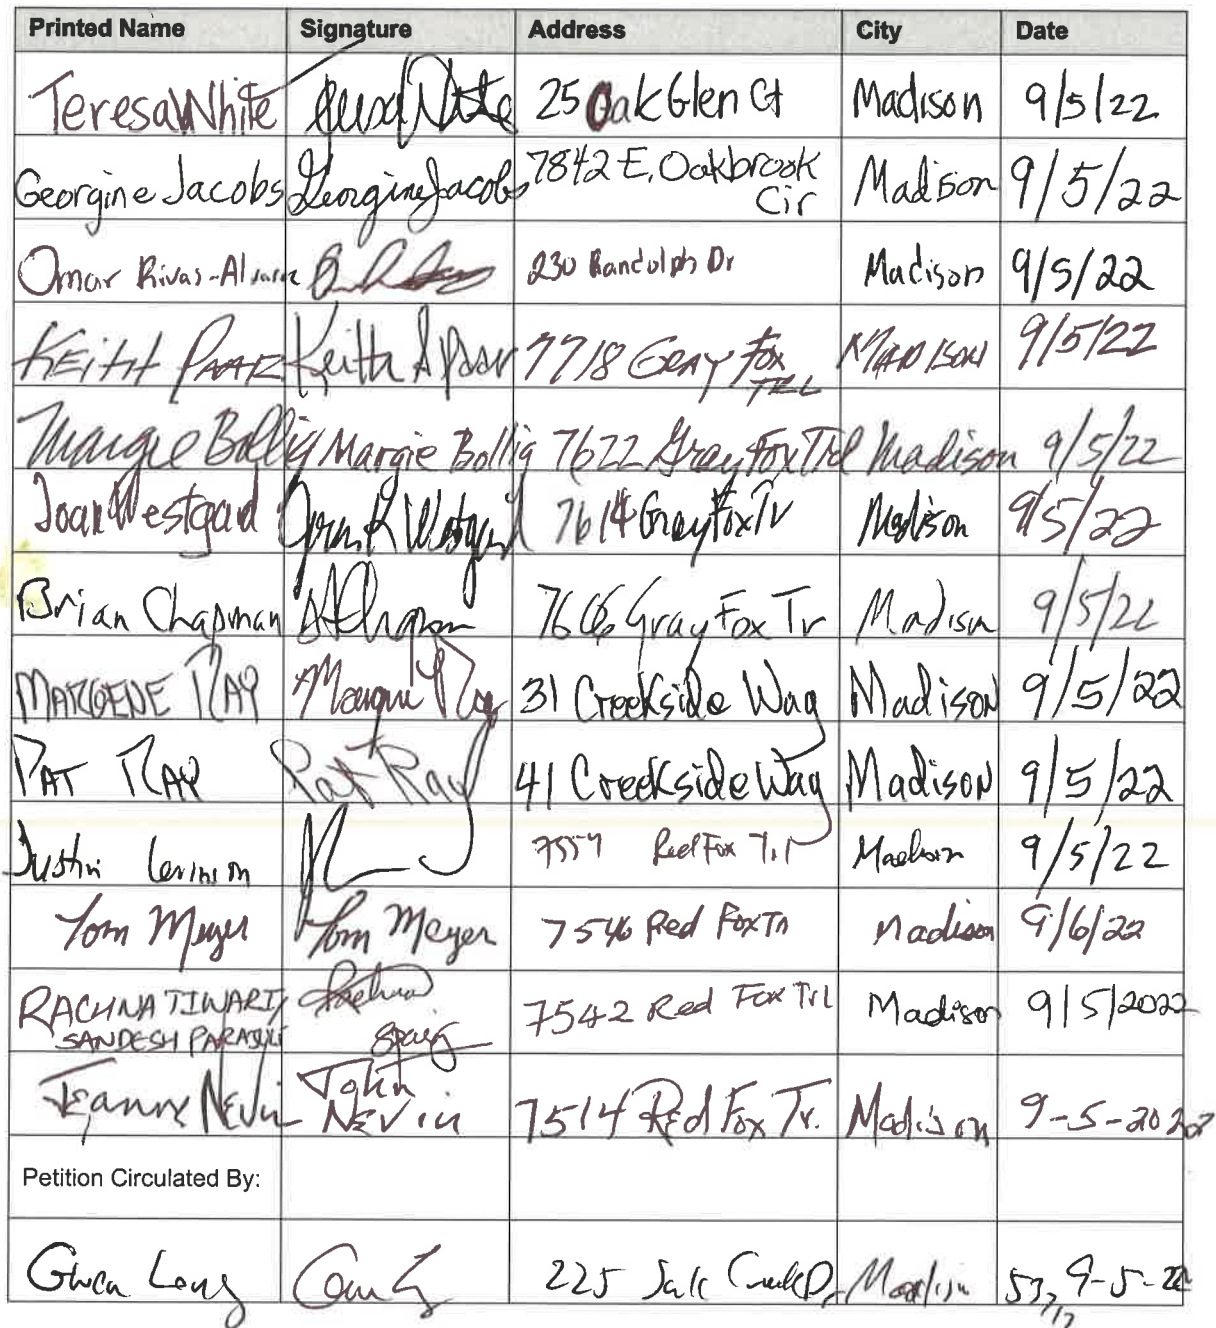 Printed Name Signature Address City Date
Teresa White Teresa White 25 Oak Glen Ct Madison 9/5/22
Georgine Jacobs Georgine Jacobs 7842 E. Oakbrook Cir Madison 9/5/22
Omar Rivas- 230 Randolph Dr Madison 9/5/22
KEITH PAAR Keith A Paar 7718 GRAY FOX TRL MADISON 9/5/22
Margie Bollig Margie Bollig 7622 Gray Fox Trl Madison 9/5/22
Joan Westgard Joan K Westgard 7614 Gray Fox Tr Madison 9/5/22
Brian Chapman 7606 Gray Fox Tr Madison 9/5/22
MARGENE RAY Margene Ray 31 Creekside Way Madison 9/5/22
PAT RAY Pat Ray 41 Creekside Way Madison 9/5/22
Justin Levinson Red Fox Trl Madison 9/5/22
Tom Meyer Tom Meyer 7546 Red Fox Trl Madison 9/6/22
RACHNA TIWARI / 7542 Red Fox Trl Madison 9/5/2022
SANDESH PARAJULI
Jeanne Nevin John Nevin 7514 Red Fox Tr. Madison 9-5-2022
Petition Circulated By:
Gwen Long 225 Madison 9-5-22